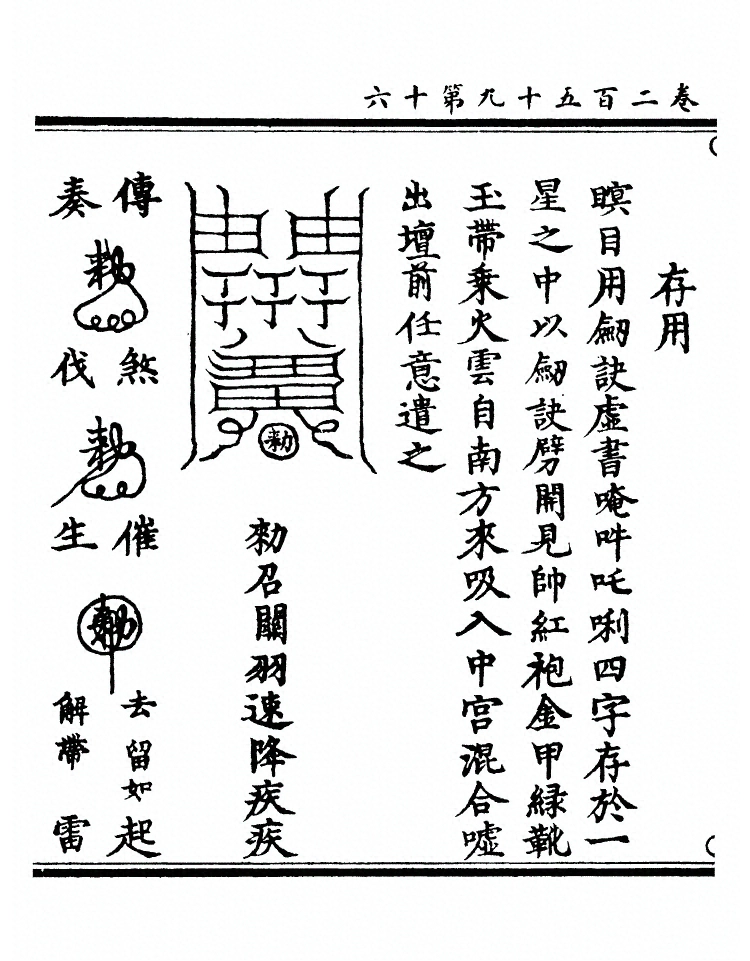 卷二百五十九第十六
存用
瞑目用劒訣虛書唵吽吒唎四字存於一
星之中以劒訣劈開見帥紅袍金甲緑靴
玉帶乘火雲自南方來吸入中宫混合噓
出壇前任意遣之
勑
勑召關羽速降疾疾
傳煞催去留如起
勑勑勑
奏伐生解帶雷